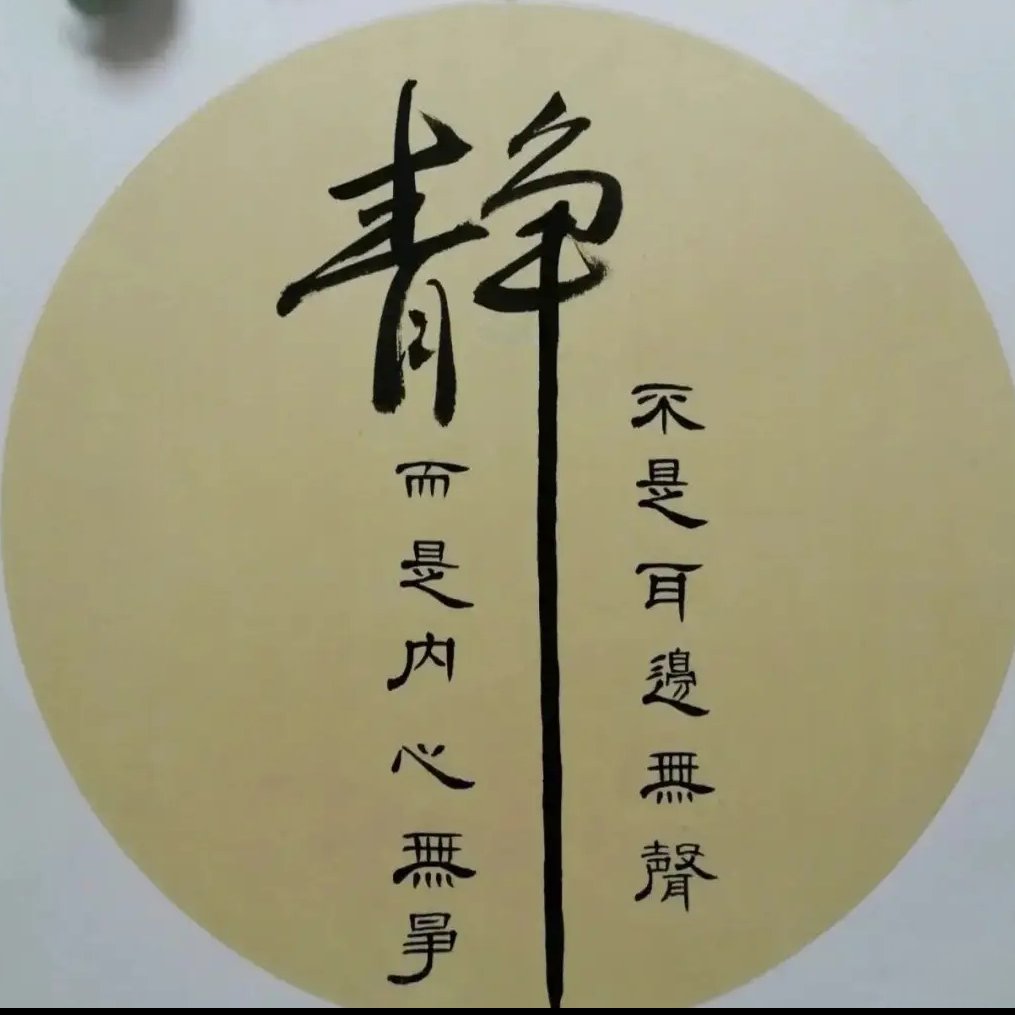 静
不是耳邊無聲
而是内心無爭